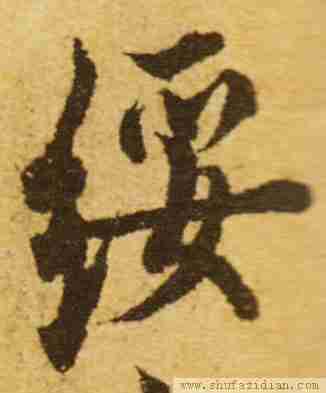 纓
www.shufazidian.com